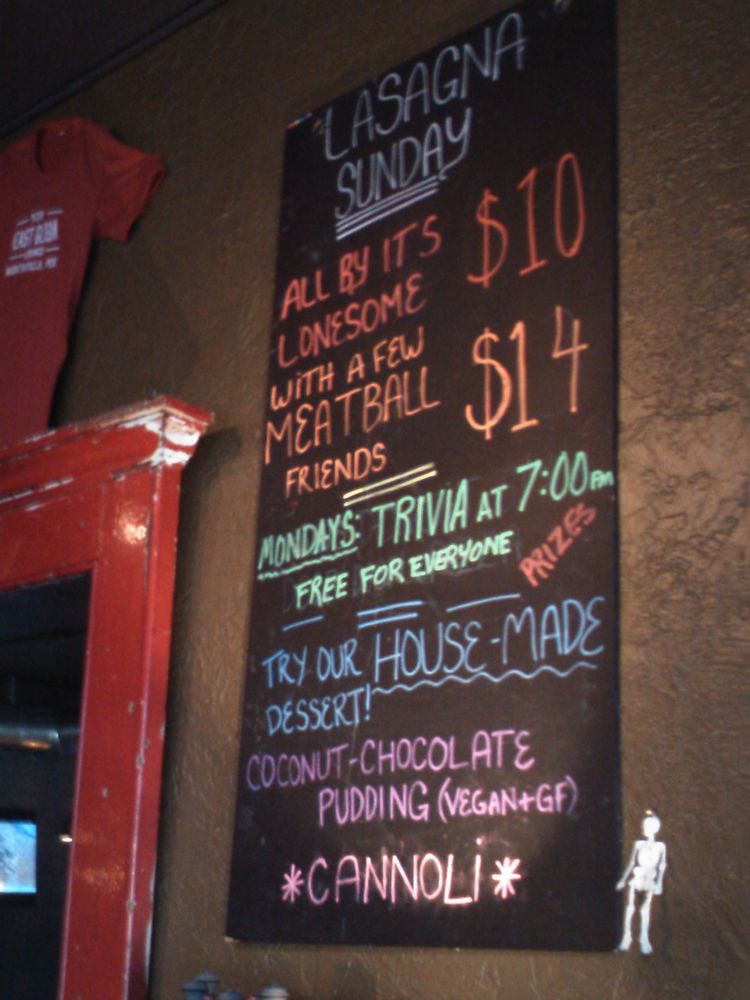 LASAGNA
SUNDAY
ALL BY IT'S
LONESOME $10
WITH A FEW
MEATBALL $14
FRIENDS
MONDAYS: TRIVIA AT 7:00PM
FREE FOR EVERYONE PRIZES
TRY OUR HOUSE-MADE
DESSERT!
COCONUT-CHOCOLATE
PUDDING (VEGAN+GF)
*CANNOLI*
EAST